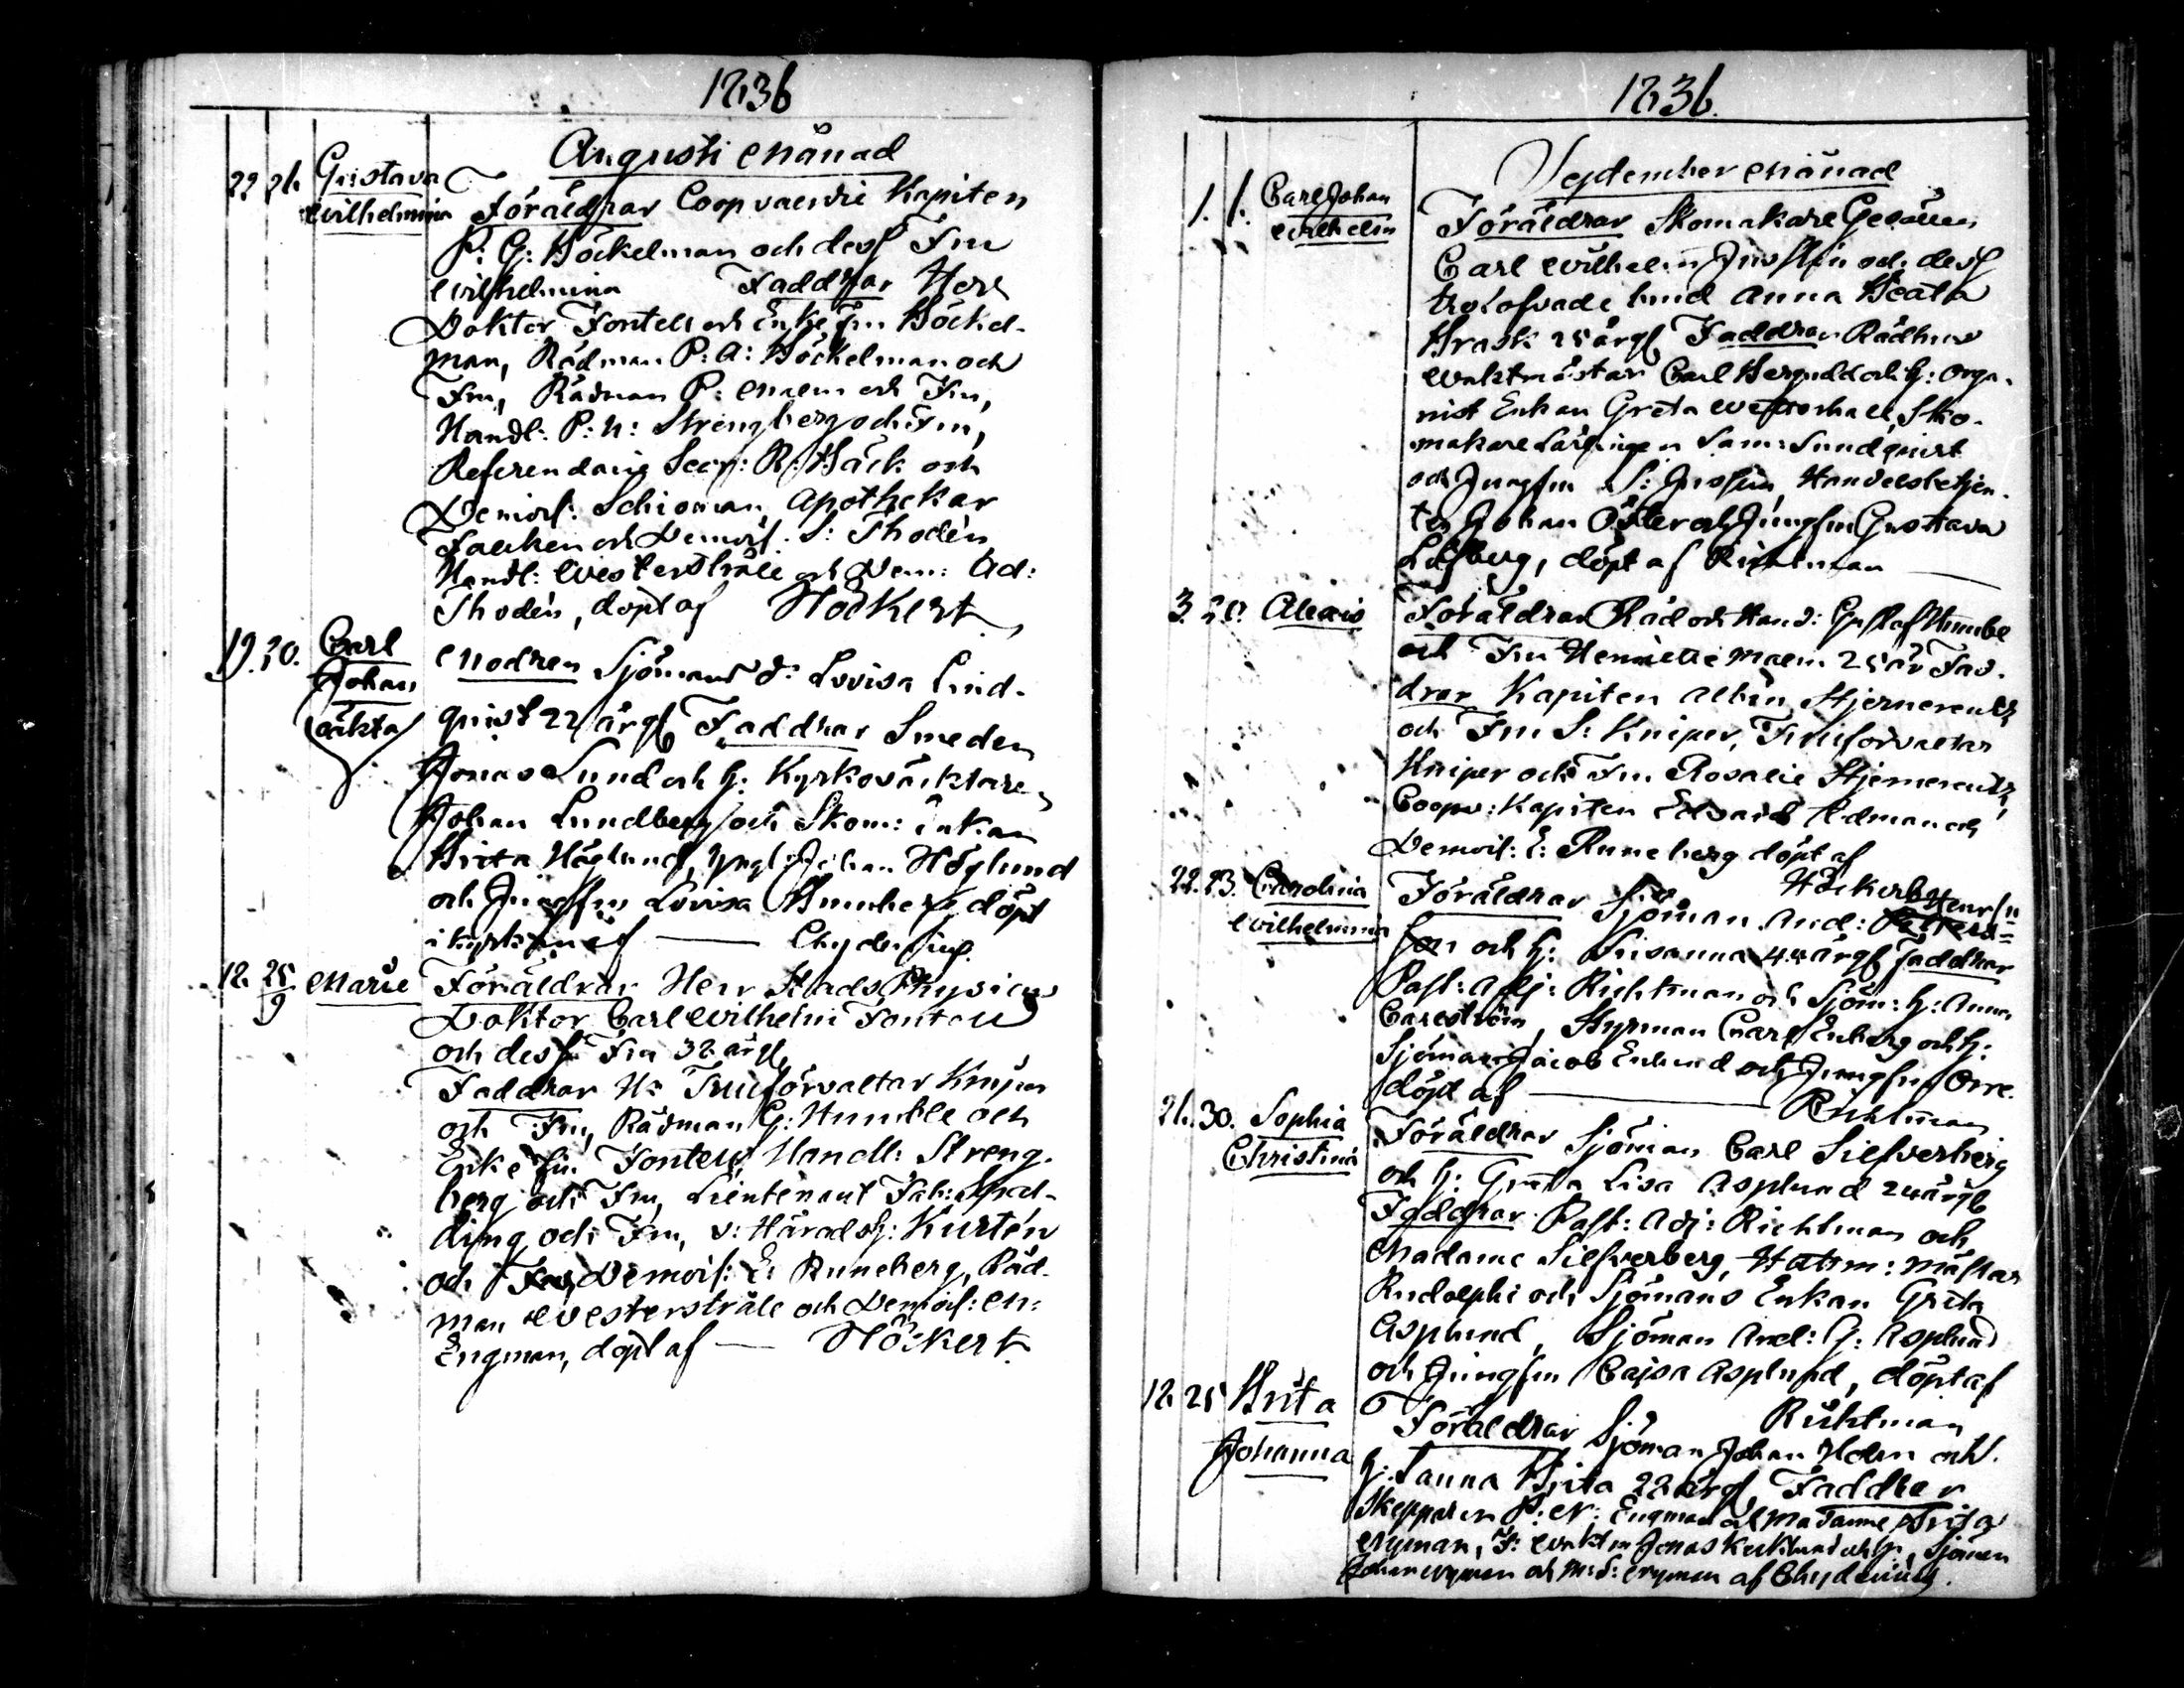 1836
Augusti Månad
22 26 Gustava Wilhelmina Föräldrar Coopvaerdie Kapiten
P: G: Böckelman och dess Fru
Wilhelmina Faddrar Herr
Doktor Fontell och Enke Fru Böckel-
man, Rådman P: A: Böckelman och
Fru, Rådman P: Malm och Fru,
Handl: P: H: Strengberg och Fru,
Referendarie Secr: R: Bäck och
Demois: Schioman, Apothekar
Falcken och Demois: S: Thodén
Handl: Westerstråle och Dem: Ad:
Thodén, döpt af Höckert
19. 20. Carl Johan oäkta Modren Sjömans d: Lovisa Lind-
quist 22 årg Faddrar Smeden
Jonas Lund och h: Kyrkoväcktaren
Johan Lundberg och Skom: enkan
Brita Höglund, Yngl Johan Höglund
och Jungfru Lovisa döpt
i kyrkan af Chydenius.
18. 25/9 Marie Föräldrar Herr Stads Physicus
Doktor Carl Wilhelm Fontell
och dess Fru 32 årg
Faddrar Hr Tullförvaltar Kniper
och Fru, Rådman G: Humble och
Enke fru Fontell, Handl: Streng-
berg och Fru, Lieutenant Fab: Spal-
ding och Fru, v: Häradsh: Kurtén
och Fru, Demois: E: Runeberg, Råd-
man Westerstråle och Demois: M:
Engman, döpt af Höckert.
1836.
September Månad
1. 1. Carl Johan Wilhelm Föräldrar Skomakare Gesällen
Carl Wilhelm Juslin och dess
trolofvade hud Anna Beata
Brask 25 årg Faddrar Rådhus
Waktmästar Carl Berguld och h: Orga-
nist Enkan Greta Westerhall, Sko-
makare Lärlingen Sam: Sundqvist
och Jungfru S: Juslin, Handelsbetjen-
ten Johan Öster och Jungfru Gustava
Löfberg, döpt af Richtman
3. 20. Alexis Föräldrar Råd och Hand: Gustaf Humble
och Fru Henriette Malm 25 år Fad-
drar Kapiten Albin Stjernereutz
och Fru S: Kniper, Tullförvaltar
Kniper och Fru Rosalie Stjernereutz,
Coopv: Kapiten Edvard Edman och
Demois: E: Runeberg döpt af
Höckert
22. 23. Carolina Wilhelmina Föräldrar Sjöman And: Henrics
son och h: Susanna 44 årg Faddrar
Past: Adj: Richtman och Sjöm: h: Anna
Carlström, Styrman Carl Enberg och h:
Sjöman Jacob Enlund och Jungfru Orre.
döpt af Richtman
26. 30. Sophia Christina Föräldrar Sjöman Carl Silfverberg
och h: Greta Lisa Asplund 24 årg
Faddrar Past: Adj: Richtman och
Madame Silfverberg, Hattm: mästar
Rudolphi och Sjömans Enkan Greta
Asplund, Sjöman And: G: Asplund
och Jungfru Cajsa Asplund, döpt af
Richtman
18. 25 Brita Johanna Föräldrar Sjöman Johan Holm och
h: Sanna Brita 22 årg Faddrar
Skepparen P: N: Engman och Madame Brita
Nyman, F: Waktm Jonas och h, Sjöman
Johan Nyman och M: S: Nyman af Chydenius.